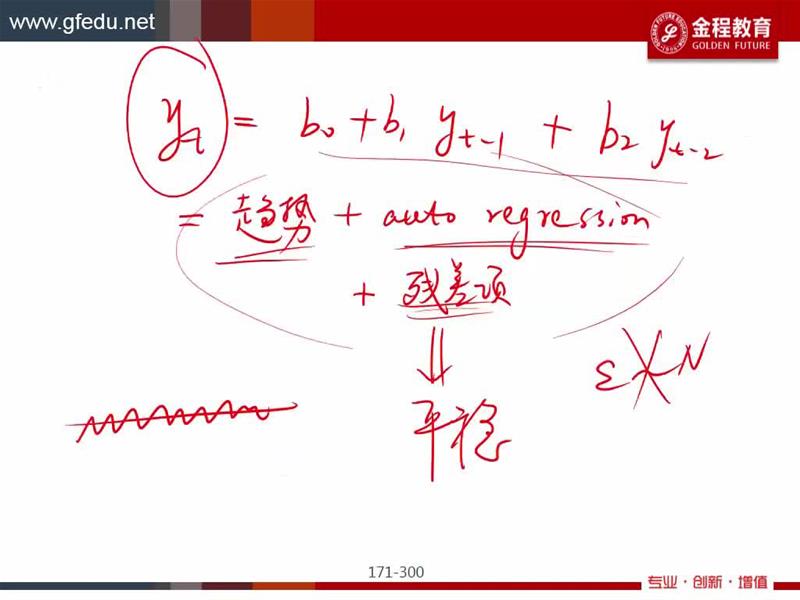 www.gfedu.net
金程教育
GOLDEN FUTURE
yt = b0 + b1 yt-1 + b2 yt-2
= 趋势 + auto regression
+ 残差项
⇓
ε N
平稳
171-300
专业·创新·增值